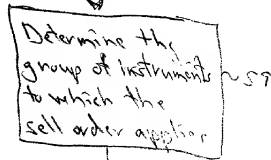 Determine the
group of instruments ~ 59
to which the
sell order applies